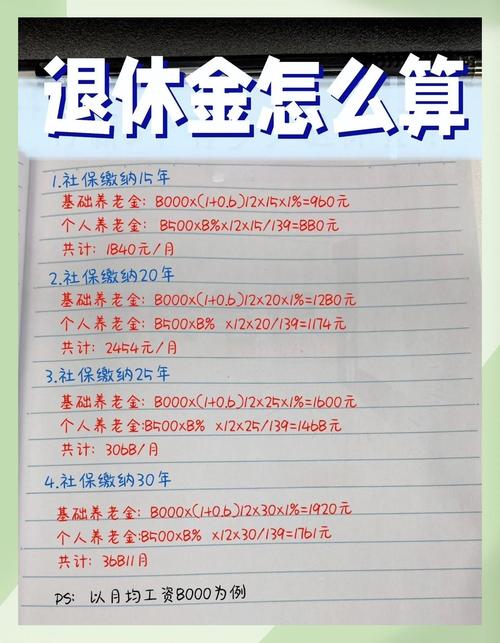 退休金怎么算
1.社保缴纳15年
基础养老金: 8000x(1+0.6)12x15x1%=960元
个人养老金: 8500x8%x12x15/139=880元
共计: 1840元/月
2.社保缴纳20年
基础养老金: 8000x(1+0.6)12x20x1%=1280元
个人养老金: 8500x8% x12x20/139=1174元
共计: 2454元/月
3.社保缴纳25年
基础养老金: 8000x(1+0.6)12x25x1%=1600元
个人养老金:8500x8% x12x25/139=1468元
共计: 3068/月
4.社保缴纳30年
基础养老金: 8000x(1+0.6)12x30x1%=1920元
个人养老金:8500x8% x12x30/139=1761元
共计: 36811月
PS: 以月均工资8000为例